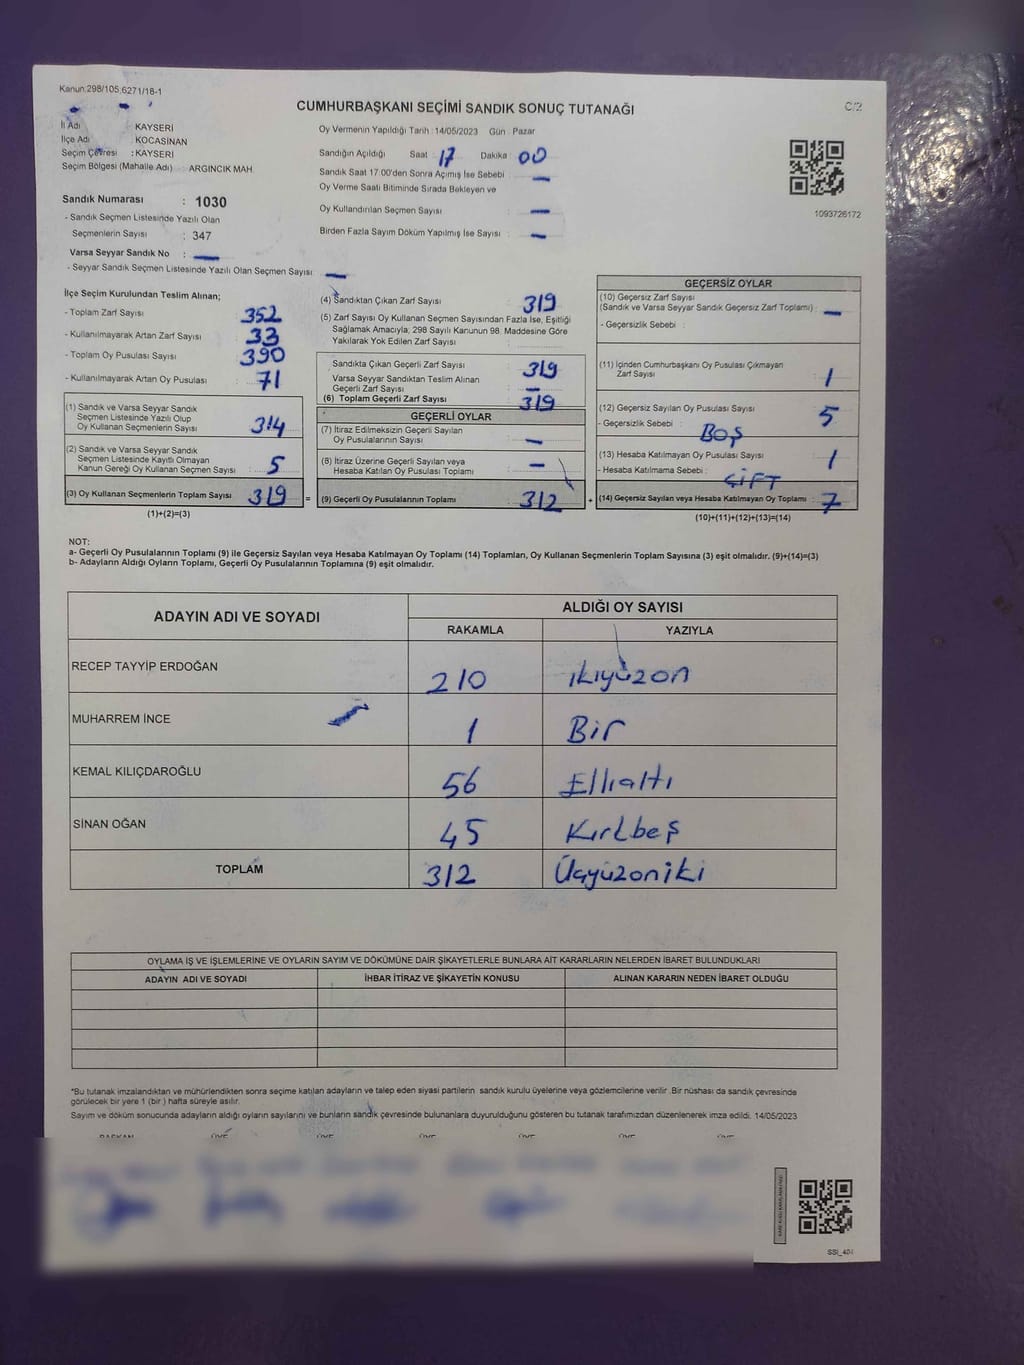 Kanun:298/105,6271/18-1
CUMHURBAŞKANI SEÇİMİ SANDIK SONUÇ TUTANAĞI
C/2
İl Adı KAYSERİ
İlçe Adı KOCASİNAN
Seçim Çevresi : KAYSERİ
Seçim Bölgesi (Mahalle Adı) : ARGINCIK MAH.
Oy Vermenin Yapıldığı Tarih : 14/05/2023 Gün : Pazar
Sandığın Açıldığı Saat : 17 Dakika : 00
Sandık Saat 17:00'den Sonra Açımış İse Sebebi : —
Oy Verme Saati Bitiminde Sırada Bekleyen ve
Oy Kullandırılan Seçmen Sayısı : —
Birden Fazla Sayım Döküm Yapılmış İse Sayısı : —
1093726172
Sandık Numarası : 1030
- Sandık Seçmen Listesinde Yazılı Olan
Seçmenlerin Sayısı : 347
Varsa Seyyar Sandık No : —
- Seyyar Sandık Seçmen Listesinde Yazılı Olan Seçmen Sayısı : —
İlçe Seçim Kurulundan Teslim Alınan;
- Toplam Zarf Sayısı : 352
- Kullanılmayarak Artan Zarf Sayısı : 33
- Toplam Oy Pusulası Sayısı : 390
- Kullanılmayarak Artan Oy Pusulası : 71
(1) Sandık ve Varsa Seyyar Sandık
Seçmen Listesinde Yazılı Olup
Oy Kullanan Seçmenlerin Sayısı : 314
(2) Sandık ve Varsa Seyyar Sandık
Seçmen Listesinde Kayıtlı Olmayan
Kanun Gereği Oy Kullanan Seçmen Sayısı : 5
(3) Oy Kullanan Seçmenlerin Toplam Sayısı : 319 =
(1)+(2)=(3)
(4) Sandıktan Çıkan Zarf Sayısı : 319
(5) Zarf Sayısı Oy Kullanan Seçmen Sayısından Fazla İse, Eşitliği
Sağlamak Amacıyla; 298 Sayılı Kanunun 98. Maddesine Göre
Yakılarak Yok Edilen Zarf Sayısı :
Sandıkta Çıkan Geçerli Zarf Sayısı : 319
Varsa Seyyar Sandıktan Teslim Alınan
Geçerli Zarf Sayısı : —
(6) Toplam Geçerli Zarf Sayısı : 319
GEÇERLİ OYLAR
(7) İtiraz Edilmeksizin Geçerli Sayılan
Oy Pusulalarının Sayısı : —
(8) İtiraz Üzerine Geçerli Sayılan veya
Hesaba Katılan Oy Pusulası Toplamı : —
(9) Geçerli Oy Pusulalarının Toplamı : 312 +
GEÇERSİZ OYLAR
(10) Geçersiz Zarf Sayısı
(Sandık ve Varsa Seyyar Sandık Geçersiz Zarf Toplamı) : —
- Geçersizlik Sebebi :
(11) İçinden Cumhurbaşkanı Oy Pusulası Çıkmayan
Zarf Sayısı : 1
(12) Geçersiz Sayılan Oy Pusulası Sayısı : 5
- Geçersizlik Sebebi : BOŞ
(13) Hesaba Katılmayan Oy Pusulası Sayısı : 1
- Hesaba Katılmama Sebebi : ÇİFT
(14) Geçersiz Sayılan veya Hesaba Katılmayan Oy Toplamı : 7
(10)+(11)+(12)+(13)=(14)
NOT:
a- Geçerli Oy Pusulalarının Toplamı (9) ile Geçersiz Sayılan veya Hesaba Katılmayan Oy Toplamı (14) Toplamları, Oy Kullanan Seçmenlerin Toplam Sayısına (3) eşit olmalıdır. (9)+(14)=(3)
b- Adayların Aldığı Oyların Toplamı, Geçerli Oy Pusulalarının Toplamına (9) eşit olmalıdır.
ADAYIN ADI VE SOYADI ALDIĞI OY SAYISI
RAKAMLA YAZIYLA
RECEP TAYYİP ERDOĞAN 210 ikiyüzon
MUHARREM İNCE 1 Bir
KEMAL KILIÇDAROĞLU 56 Ellialtı
SİNAN OĞAN 45 Kırkbeş
TOPLAM 312 Üçyüzoniki
OYLAMA İŞ VE İŞLEMLERİNE VE OYLARIN SAYIM VE DÖKÜMÜNE DAİR ŞİKAYETLERLE BUNLARA AİT KARARLARIN NELERDEN İBARET BULUNDUKLARI
ADAYIN ADI VE SOYADI İHBAR İTİRAZ VE ŞİKAYETİN KONUSU ALINAN KARARIN NEDEN İBARET OLDUĞU
*Bu tutanak imzalandıktan ve mühürlendikten sonra seçime katılan adayların ve talep eden siyasi partilerin sandık kurulu üyelerine veya gözlemcilerine verilir. Bir nüshası da sandık çevresinde
görülecek bir yere 1 (bir) hafta süreyle asılır.
Sayım ve döküm sonucunda adayların aldığı oyların sayılarını ve bunların sandık çevresinde bulunanlara duyurulduğunu gösteren bu tutanak tarafımızdan düzenlenerek imza edildi. 14/05/2023
BAŞKAN ÜYE ÜYE ÜYE ÜYE ÜYE ÜYE